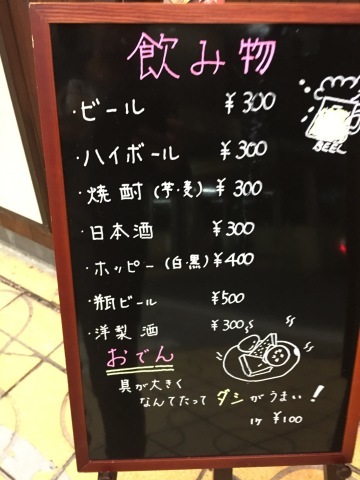 飲み物
・ビール ¥300
BEEL
・ハイボール ¥300
・焼酎(芋・麦) ¥300
・日本酒 ¥300
・ホッピー(白・黒) ¥400
・瓶ビール ¥500
・洋梨酒 ¥300
おでん
具が大きく
なんてたって ダシがうまい!
1ケ ¥100